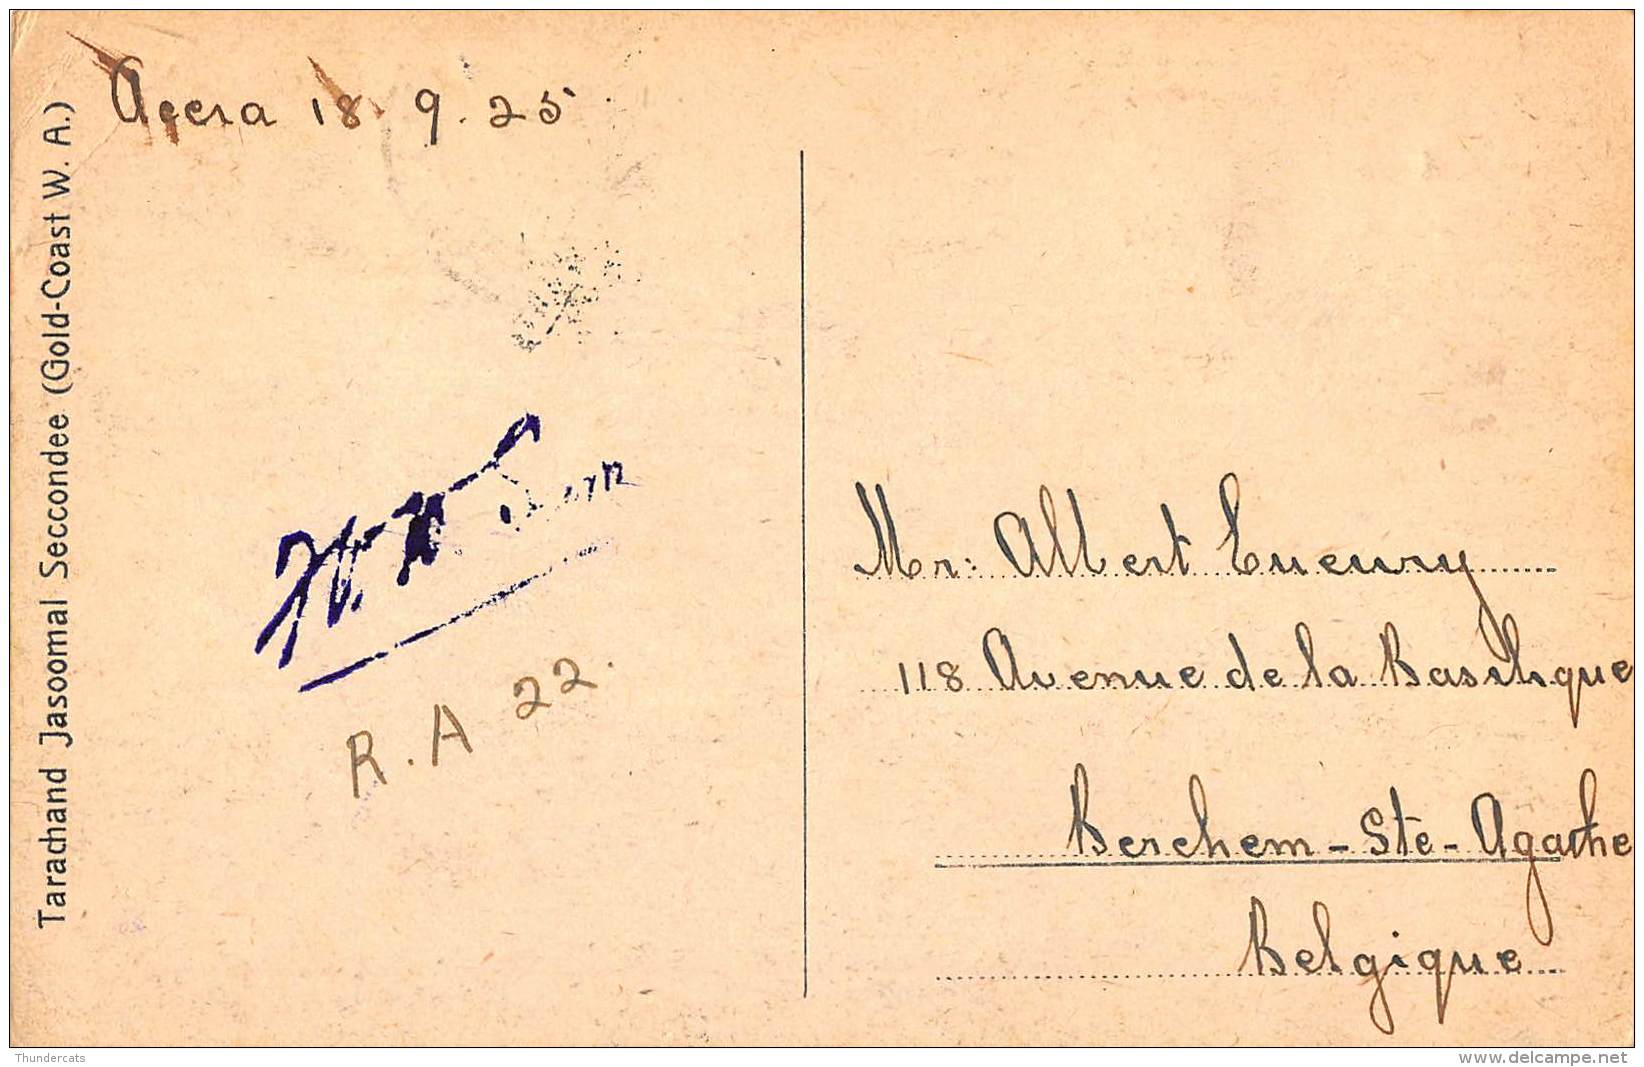 Accra 18.9.25
Tarachand Jasoomal Seccondee (Gold-Coast W. A.)
R.A 22.
Mr: Albert
118 Avenue de la Basilique
Berchem-Ste-Agathe
Belgique
Thundercats
delcampe.net